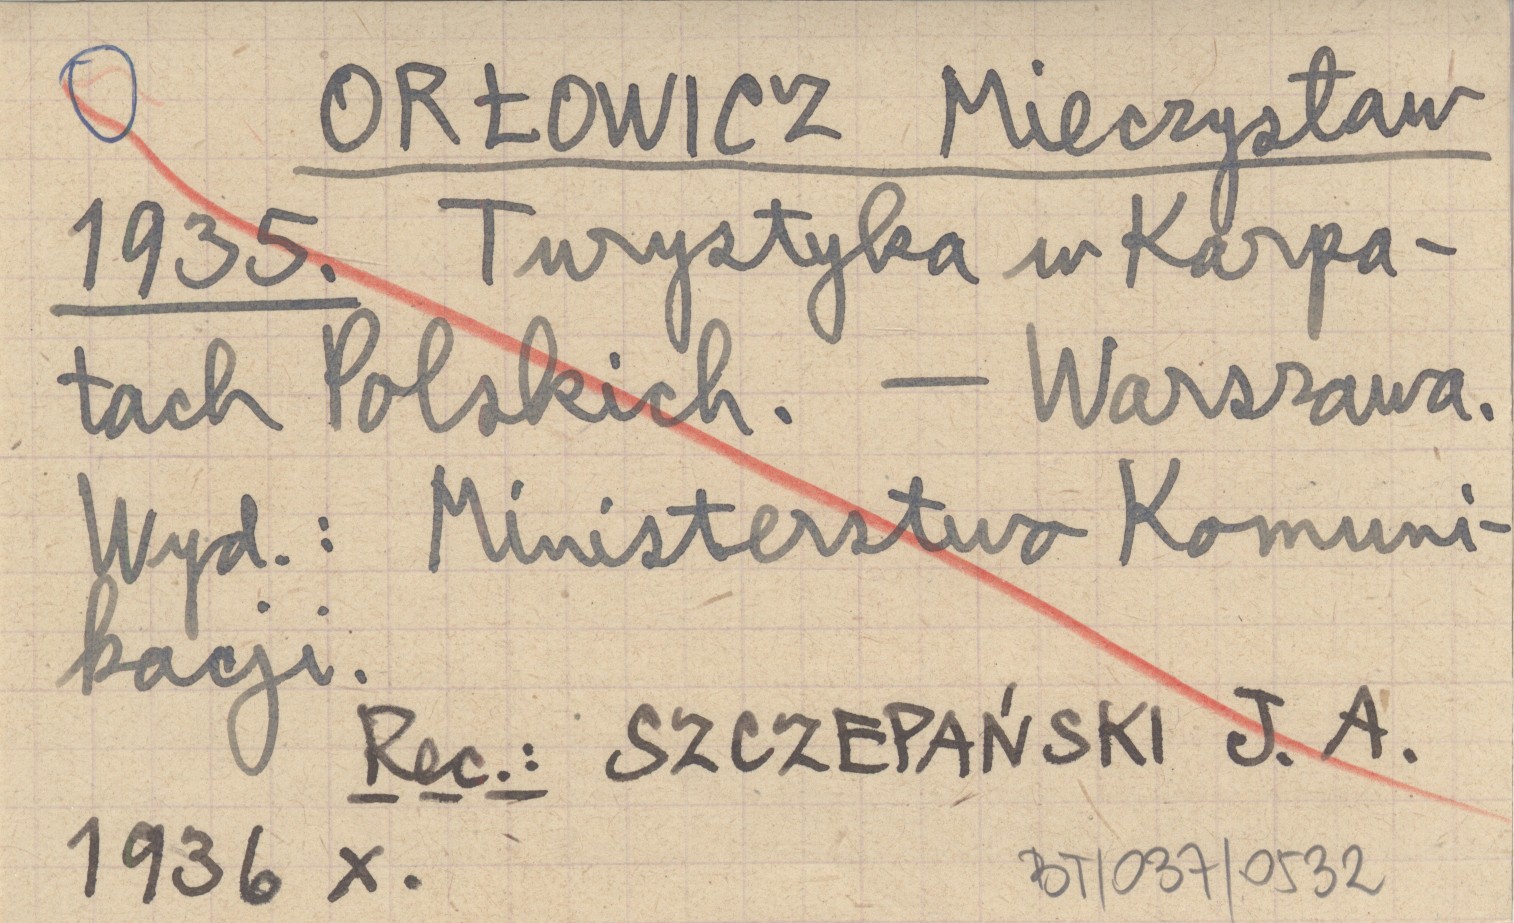 ORŁOWICZ Mieczysław
1935. Turystyka w Karpa-
tach Polskich. — Warszawa.
Wyd.: Ministerstwo Komuni-
kacji.
Rec.: SZCZEPAŃSKI J. A.
1936 x.
BT/037/0532